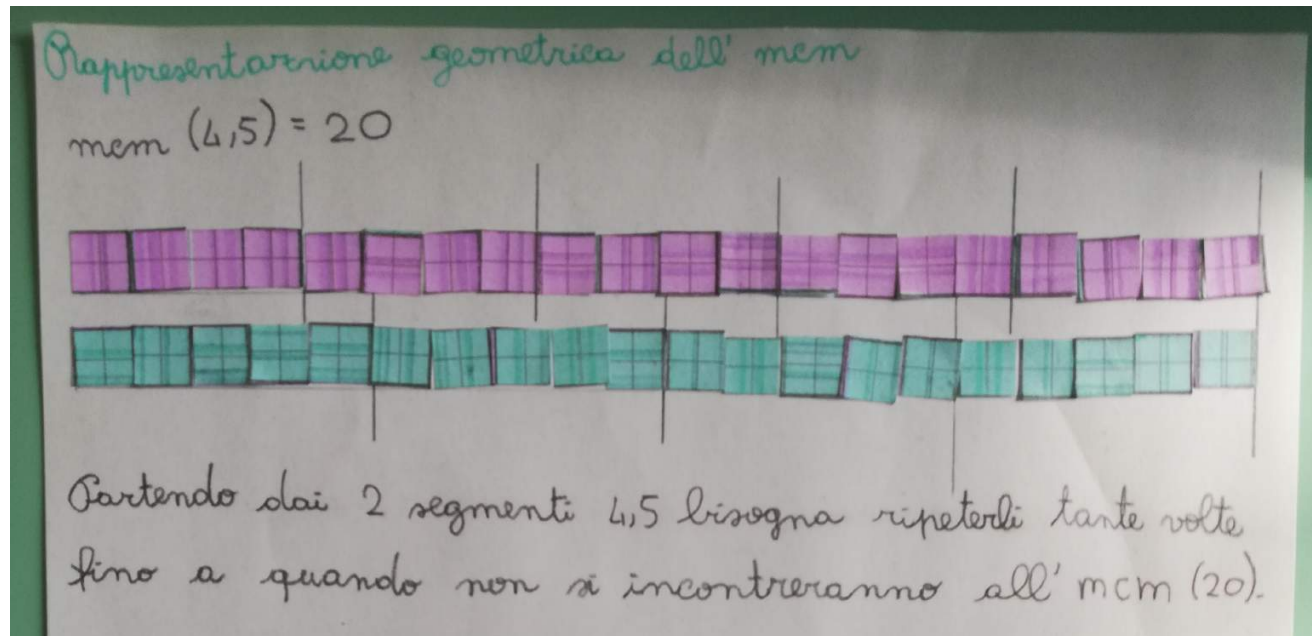 Rappresentazione geometrica dell' mcm
mcm (4,5) = 20
Partendo dai 2 segmenti 4,5 bisogna ripeterli tante volte
fino a quando non si incontreranno all' mcm (20).